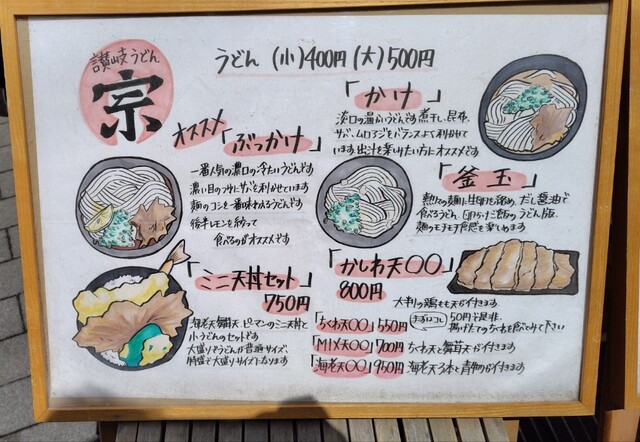 讃岐うどん
宗
うどん (小)400円 (大)500円
オススメ
「ぶっかけ」
一番人気の濃口の冷たいうどんです
濃い目のツユにサバを利かせています
麺のコシを一番味わえるうどんです
後半レモンを絞って
食べるのがオススメです
「かけ」
淡口の温かいうどんです 煮干し、昆布、
サバ、ムロアジをバランスよく利かせて
います。出汁を楽しみたい方にオススメです
「釜玉」
熱々の麺に生卵を絡め、だし醤油で
食べるうどん。卵かけご飯のうどん版。
麺のモチモチ食感を楽しめます
「ミニ天丼セット」
750円
海老天、舞茸天、ピーマンのミニ天丼と
小うどんのセットです
大盛りでうどんが普通サイズ、
特盛で大盛りサイズになります
「かしわ天〇〇」
800円
大判の鶏もも天が付きます。
「ちくわ天〇〇」550円
まずはコレ
50円で是非、
揚げたてのちくわを食べてみて下さい
「MIX天〇〇」700円 ちくわ天と舞茸天が付きます
「海老天〇〇」950円 海老天3本と青物が付きます